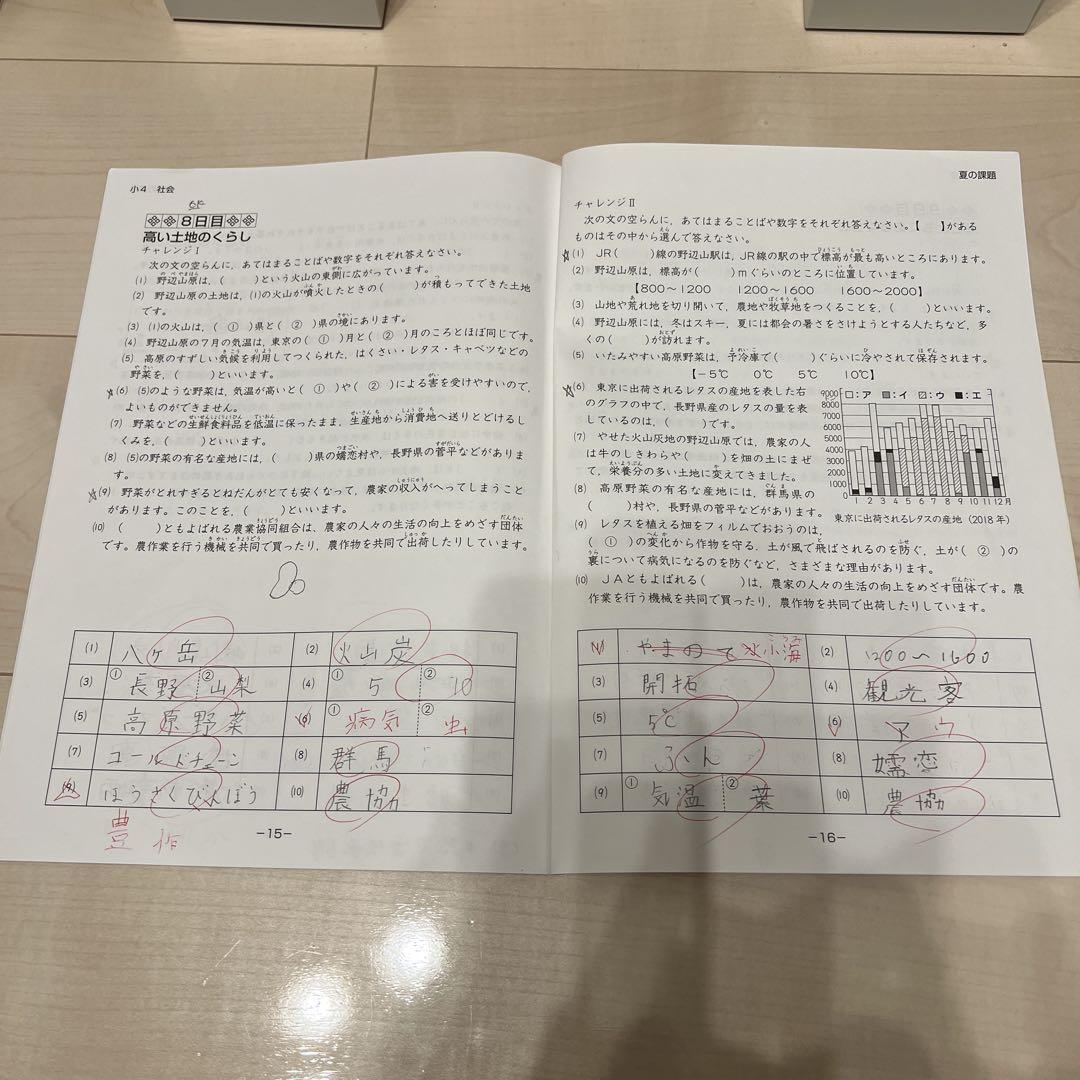 小4 社会
8日目
高い土地のくらし
チャレンジⅠ
次の文の空らんに，あてはまることばや数字をそれぞれ答えなさい。
(1) 野辺山原は，( )という火山の東側に広がっています。
(2) 野辺山原の土地は，(1)の火山が噴火したときの( )が積もってできた土地
です。
(3) (1)の火山は，( ① )県と( ② )県の境にあります。
(4) 野辺山原の7月の気温は，東京の( ① )月と( ② )月のころとほぼ同じです。
(5) 高原のすずしい気候を利用してつくられた，はくさい・レタス・キャベツなどの
野菜を，( )といいます。
☆(6) (5)のような野菜は，気温が高いと( ① )や( ② )による害を受けやすいので，
よいものができません。
(7) 野菜などの生鮮食料品を低温に保ったまま，生産地から消費地へ送りとどけるし
くみを，( )といいます。
(8) (5)の野菜の有名な産地には，( )県の嬬恋村や，長野県の菅平などがありま
す。
☆(9) 野菜がとれすぎるとねだんがとても安くなって，農家の収入がへってしまうこと
があります。このことを，( )といいます。
(10) ( )ともよばれる農業協同組合は，農家の人々の生活の向上をめざす団体
です。農作業を行う機械を共同で買ったり，農作物を共同で出荷したりしています。
(1) 八ヶ岳 (2) 火山炭
(3) ① 長野 ② 山梨 (4) ① 5 ② 10
(5) 高原野菜 (6) ① 病気 ② 虫
(7) コールドチェーン (8) 群馬
(9) ほうさくびんぼう (10) 農協
豊作
－15－
夏の課題
チャレンジⅡ
次の文の空らんに，あてはまることばや数字をそれぞれ答えなさい。【 】がある
ものはその中から選んで答えなさい。
☆(1) JR( )線の野辺山駅は，JR線の駅の中で標高が最も高いところにあります。
(2) 野辺山原は，標高が( )mぐらいのところに位置しています。
【800～1200 1200～1600 1600～2000】
(3) 山地や荒れ地を切り開いて，農地や牧草地をつくることを，( )といいます。
(4) 野辺山原には，冬はスキー，夏には都会の暑さをさけようとする人たちなど，多
くの( )が訪れます。
(5) いたみやすい高原野菜は，予冷庫で( )ぐらいに冷やされて保存されます。
【－5℃ 0℃ 5℃ 10℃】
☆(6) 東京に出荷されるレタスの産地を表した右
のグラフの中で，長野県産のレタスの量を表
しているのは，( )です。
(7) やせた火山灰地の野辺山原では，農家の人
は牛のしきわらや( )を畑の土にまぜ
て，栄養分の多い土地に変えてきました。
(8) 高原野菜の有名な産地には，群馬県の
( )村や，長野県の菅平などがあります。
(9) レタスを植える畑をフィルムでおおうのは，
( ① )の変化から作物を守る，土が風で飛ばされるのを防ぐ，土が( ② )の
裏について病気になるのを防ぐなど，さまざまな理由があります。
(10) JAともよばれる( )は，農家の人々の生活の向上をめざす団体です。農
作業を行う機械を共同で買ったり，農作物を共同で出荷したりしています。
□：ア ■：イ ▨：ウ ■：エ
9000
8000
7000
6000
5000
4000
3000
2000
1000
0
1 2 3 4 5 6 7 8 9 10 11 12月
東京に出荷されるレタスの産地（2018年）
(1) やまのて 小海 (2) 1200～1600
(3) 開拓 (4) 観光客
(5) 5℃ (6) ア ウ
(7) ふん (8) 嬬恋
(9) ① 気温 ② 葉 (10) 農協
－16－